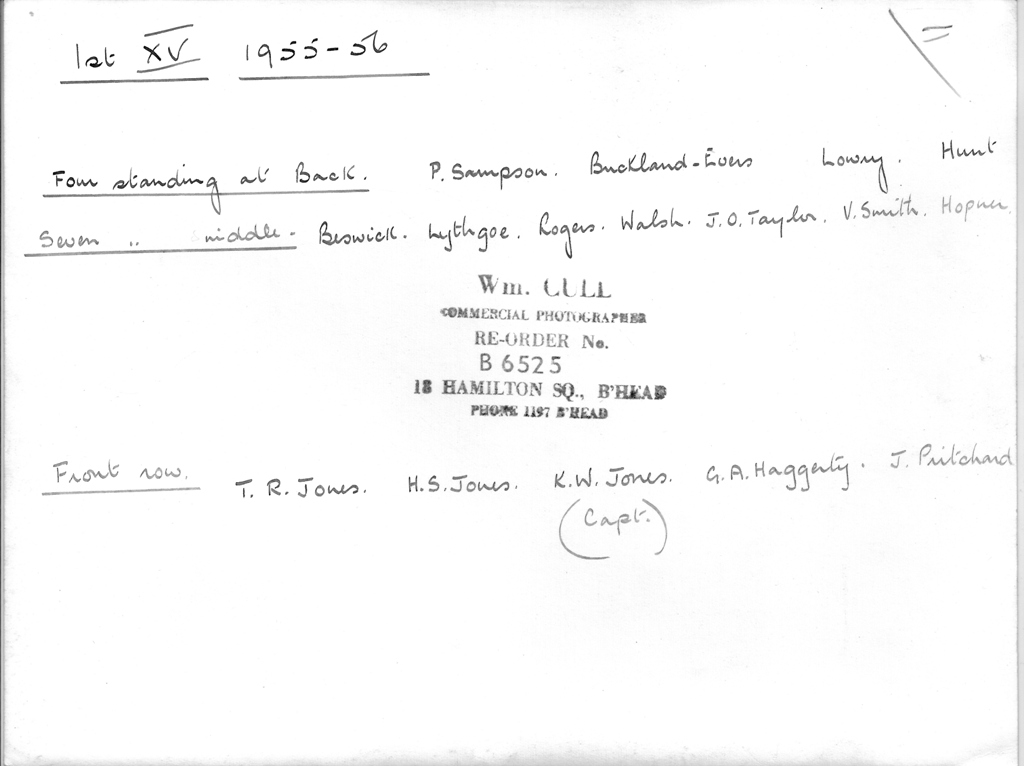 1st XV 1955-56
Four standing at Back. P. Sampson. Buckland-Evers Lowry. Hunt
Seven " middle- Beswick. Lythgoe. Rogers. Walsh. J.O. Taylor. V. Smith. Hopner.
Wm. CULL
COMMERCIAL PHOTOGRAPHER
RE-ORDER No.
B 6525
18 HAMILTON SQ., B'HEAD
PHONE 1197 B'HEAD
Front row. T. R. Jones. H.S. Jones. K.W. Jones. G.A. Haggerty. J. Pritchard
(Capt.)